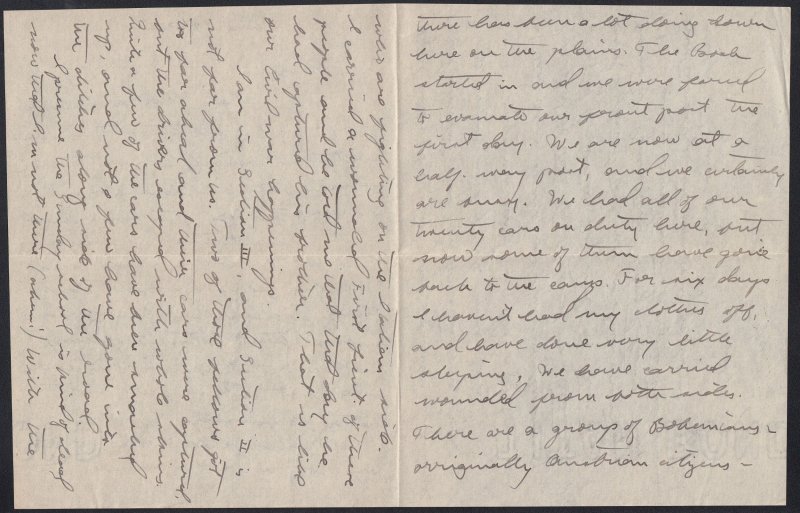 there has been a lot doing down
here on the plains. The Bosch
started in and we were forced
to evacuate our front post the
first day. We are now at a
half-way post, and we certainly
are busy. We had all of our
twenty cars on duty here, but
now some of them have gone
back to the camp. For six days
I haven't had my clothes off,
and have done very little
sleeping. We have carried
wounded from both sides.
There are a group of Bohemians –
orriginally Austrian citizens –
who are fighting on the Italian side.
I carried a wounded First Lieut. of these
people and he told me that that day he
had captured his brother. That is like
our Civil war happenings.
I am in Section III, and Section II is
not far from us. Two of those fellows got
too far ahead and their cars were captured,
but the drivers escaped with whole skins.
Quite a few of the cars have been smashed
up, and not a few have gone into
the ditches along side of the road.
I presume the Sunday school is kind of dead
now that I'm not there (ahem!) With the